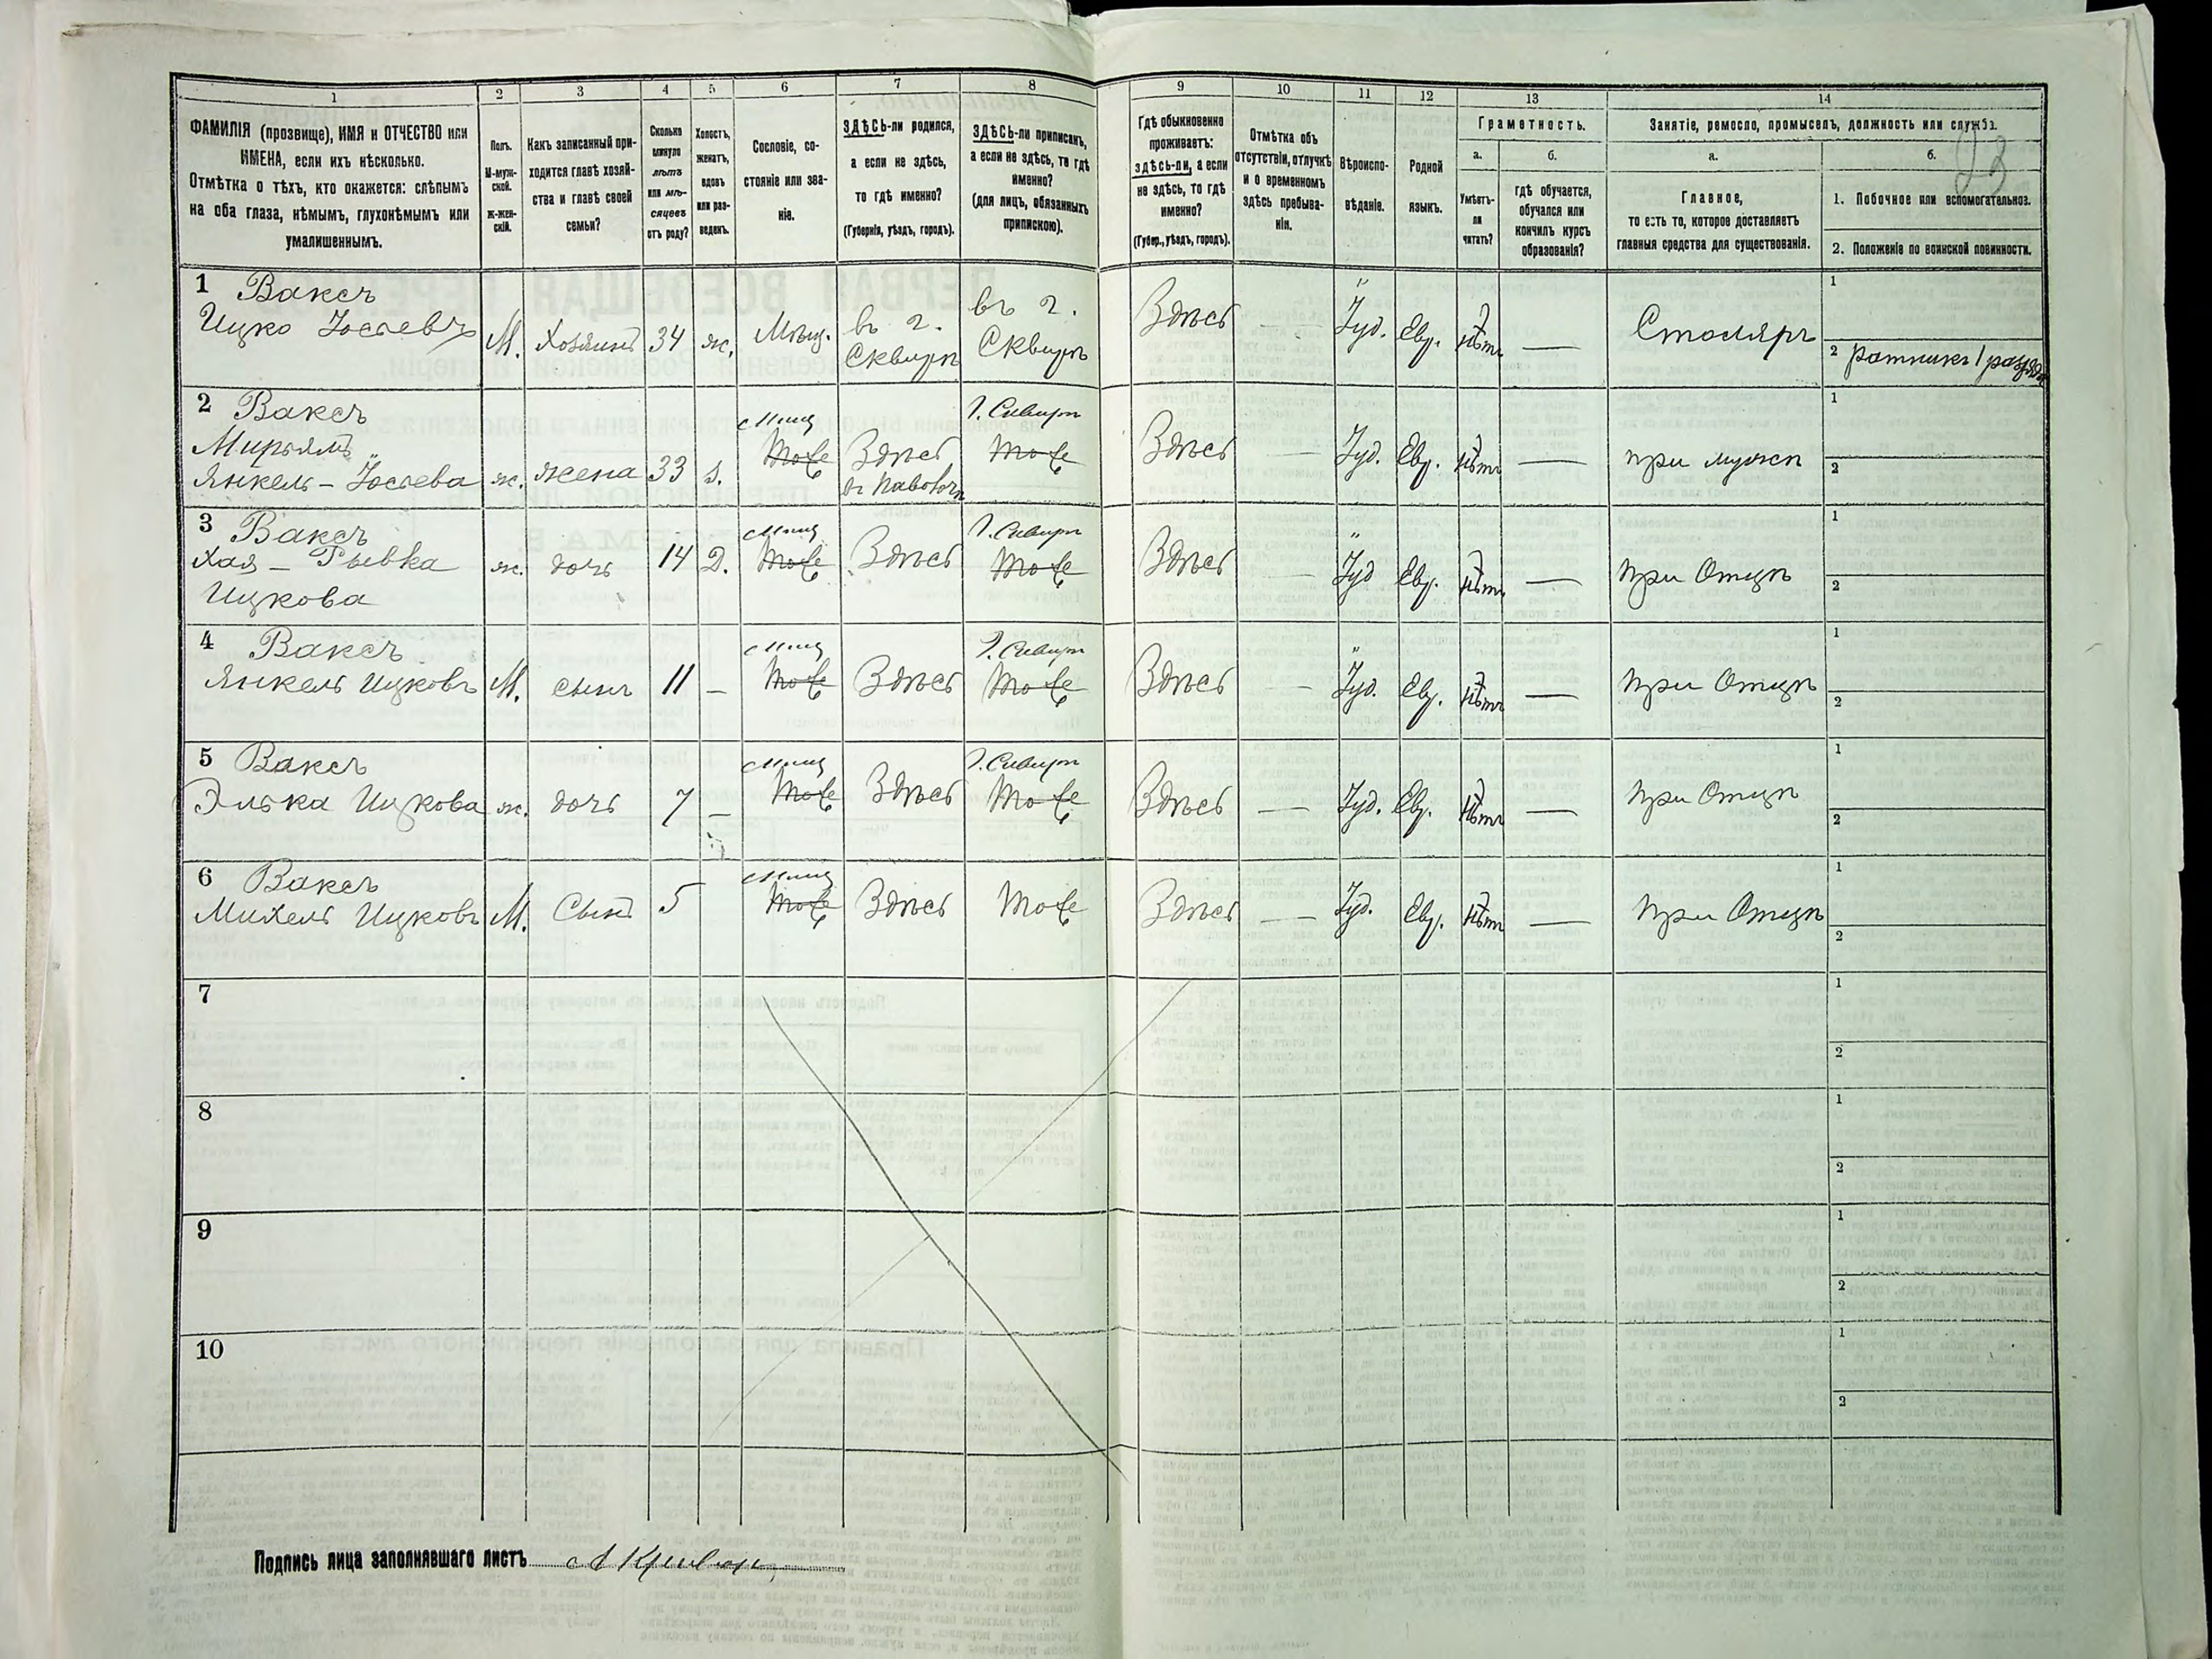 1
2
3
4
5
6
7
8
9
10
11
12
13
14
ФАМИЛІЯ (прозвище), ИМЯ и ОТЧЕСТВО или
ИМЕНА, если ихъ нѣсколько.
Отмѣтка о тѣхъ, кто окажется: слѣпымъ
на оба глаза, нѣмымъ, глухонѣмымъ или
умалишеннымъ.
Полъ.
М-муж-
ской.
ж-жен-
скій.
Какъ записанный при-
ходится главѣ хозяй-
ства и главѣ своей
семьи?
Сколько
минуло
лѣтъ
или мѣ-
сяцевъ
отъ роду?
Холостъ,
женатъ,
вдовъ
или раз-
веденъ.
Сословіе, со-
стояніе или зва-
ніе.
ЗДѢСЬ-ли родился,
а если не здѣсь,
то гдѣ именно?
(Губернія, уѣздъ, городъ).
ЗДѢСЬ-ли приписанъ,
а если не здѣсь, то гдѣ
именно?
(для лицъ, обязанныхъ
припискою).
Гдѣ обыкновенно
проживаетъ:
здѣсь-ли, а если
не здѣсь, то гдѣ
именно?
(Губер., уѣздъ, городъ).
Отмѣтка объ
отсутствіи, отлучкѣ
и о временномъ
здѣсь пребыва-
ніи.
Вѣроиспо-
вѣданіе.
Родной
языкъ.
Грамотность.
а.
Умѣетъ-
ли
читать?
б.
гдѣ обучается,
обучался или
кончилъ курсъ
образованія?
Занятіе, ремесло, промыселъ, должность или служба.
23
а.
Главное,
то есть то, которое доставляетъ
главныя средства для существованія.
б.
1. Побочное или вспомогательное.
2. Положеніе по воинской повинности.
1 Ваксъ
Ицко Іосьевъ
М.
Хозяинъ
34
ж.
Мѣщ.
въ г.
Сквирѣ
въ г.
Сквирѣ
Здѣсь
Іуд.
Евр.
нѣтъ
Столяръ
1
2 ратникъ 1 разряд
2 Ваксъ
Мирьямъ
Янкель-Іосьева
ж.
жена
33
з.
Мѣщ
тоже
Здѣсь
Г. Сквиры
тоже
Здѣсь
Іуд.
Евр.
нѣтъ
при мужѣ
1
2
3 Ваксъ
Хая - Рывка
Ицкова
ж.
дочь
14
Д.
Мѣщ
тоже
Здѣсь
Г. Сквиры
тоже
Здѣсь
Іуд
Евр.
нѣтъ
при Отцѣ
1
2
4 Ваксъ
Янкель Ицковъ
М.
сынъ
11
Мѣщ
тоже
Здѣсь
Г. Сквиры
тоже
Здѣсь
Іуд.
Евр.
нѣтъ
при Отцѣ
1
2
5 Ваксъ
Элька Ицкова
ж.
дочь
7
Мѣщ
тоже
Здѣсь
Г. Сквиры
тоже
Здѣсь
Іуд.
Евр.
нѣтъ
при Отцѣ
1
2
6 Ваксъ
Михель Ицковъ
М.
Сынъ
5
Мѣщ
тоже
Здѣсь
тоже
Здѣсь
Іуд.
Евр.
нѣтъ
при Отцѣ
1
2
7
1
2
8
1
2
9
1
2
10
1
2
Подпись лица заполнявшаго листъ